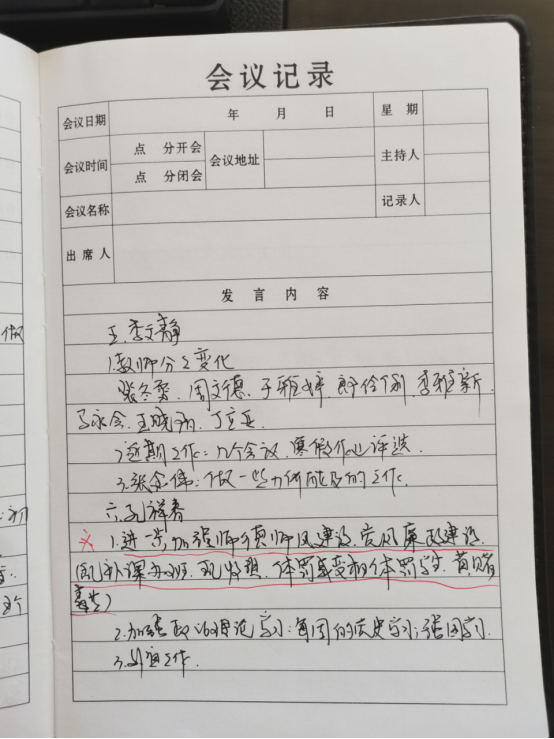 会议记录
会议日期 年 月 日 星期
会议时间 点 分开会 会议地址 主持人
点 分闭会
会议名称 记录人
出席人
发言内容
五.李文静
1.教师分工变化
张冬雯.周文德.于雅婷.
马永会.王晓.丁立亚.
2.近期工作:几个会议.寒假作业评选.
3.张金伟:做一些力所能及的工作.
六.孔祥春
1.进一步加强师德师风建设.党风廉政建设.
补课办班.体罚或变相体罚学生.
2.加强政治理论学习:每周的党史学习;强国学习.
3.工作.
做